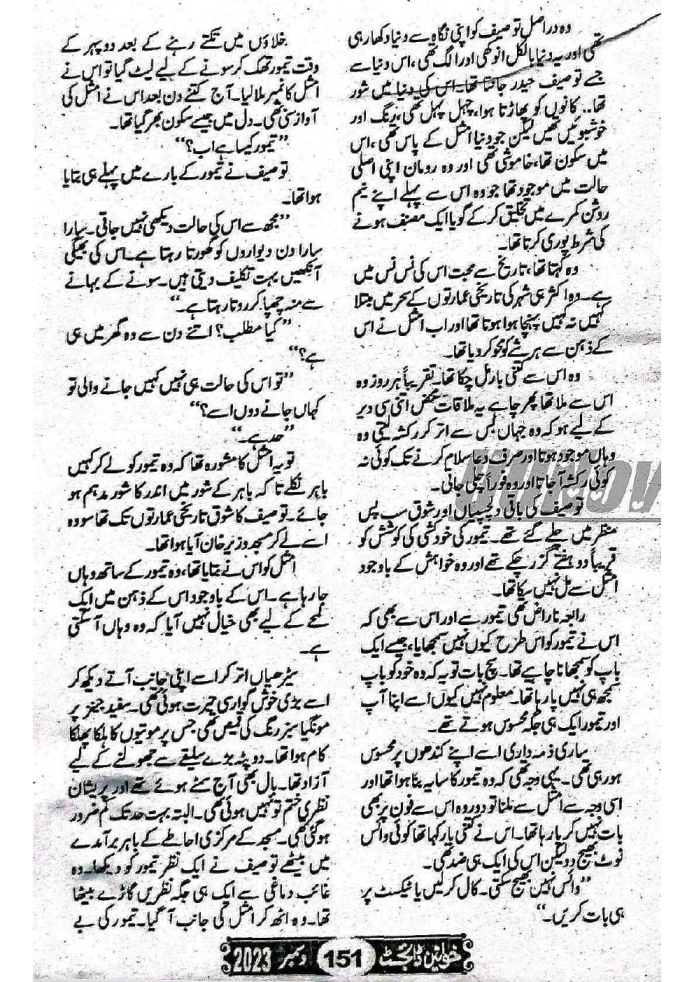 وہ دراصل توصیف کو اپنی نگاہ سے دنیا دکھا رہی
تھی اور یہ دنیا بالکل انوکھی اور الگ تھی، اس دنیا سے
جسے توصیف حیدر جانتا تھا۔ اس کی دنیا میں شور
تھا۔۔ کانوں کو پھاڑتا ہوا، چہل پہل تھی، رنگ اور
خوشبوئیں تھیں لیکن جو دنیا امثل کے پاس تھی، اس
میں سکون تھا، خاموشی تھی اور وہ رومان اپنی اصلی
حالت میں موجود تھا جو وہ اس سے پہلے اپنے نیم
روشن کمرے میں تخلیق کر کے گویا ایک مصنف ہونے
کی شرط پوری کرتا تھا۔
وہ کہتا تھا، تاریخ سے محبت اس کی نس نس میں
ہے۔ وہ اکثر ہی شہر کی تاریخی عمارتوں کے سحر میں مبتلا
کہیں نہ کہیں پہنچا ہوا ہوتا تھا اور اب امثل نے اس
کے ذہن سے ہر شے کو محو کر دیا تھا۔
وہ اس سے کتنی بار مل چکا تھا۔ تقریباً ہر روز وہ
اس سے ملا تھا پھر چاہے یہ ملاقات محض اتنی سی دیر
کے لیے ہو کہ وہ جہاں بس سے اتر کر رکشہ لیتی وہ
وہاں موجود ہوتا اور صرف دعا سلام کرنے تک کوئی نہ
کوئی رکشا آ جاتا اور وہ فوراً چلی جاتی۔
توصیف کی باقی دلچسپیاں اور شوق سب پس
منظر میں چلے گئے تھے۔ تیمور کی خودکشی کی کوشش کو
قریباً دو ہفتے گزر چکے تھے اور وہ خواہش کے باوجود
امثل سے مل نہیں سکا تھا۔
رابعہ ناراض تھی تیمور سے اور اس سے بھی کہ
اس نے تیمور کو اس طرح کیوں نہیں سمجھایا، جیسے ایک
باپ کو سمجھانا چاہیے تھا۔ سچ بات تو یہ کہ وہ خود کو باپ
سمجھ ہی نہیں پا رہا تھا۔ معلوم نہیں کیوں اسے اپنا آپ
اور تیمور ایک ہی جگہ محسوس ہوتے تھے۔
ساری ذمہ داری اسے اپنے کندھوں پر محسوس
ہو رہی تھی۔ یہی وجہ تھی کہ وہ تیمور کا سایہ بنا ہوا تھا اور
اسی وجہ سے امثل سے ملنا تو دور وہ اس سے فون پر بھی
بات نہیں کر پا رہا تھا۔ اس نے کتنی بار کہا تھا کوئی وائس
نوٹ بھیج دو لیکن اس کی ایک ہی ضد تھی۔
’’وائس نہیں بھیج سکتی۔ کال کر لیں یا ٹیکسٹ پر
ہی بات کریں۔‘‘
خلاؤں میں تکتے رہنے کے بعد دوپہر کے
وقت تیمور تھک کر سونے کے لیے لیٹ گیا تو اس نے
امثل کا نمبر ملا لیا۔ آج کتنے دن بعد اس نے امثل کی
آواز سنی تھی۔ دل میں جیسے سکون بھر گیا تھا۔
’’تیمور کیسا ہے اب؟‘‘
توصیف نے تیمور کے بارے میں پہلے ہی بتایا
ہوا تھا۔
’’مجھ سے اس کی حالت دیکھی نہیں جاتی۔ سارا
سارا دن دیواروں کو گھورتا رہتا ہے۔ اس کی بھیگی
آنکھیں بہت تکلیف دیتی ہیں۔ سونے کے بہانے
سے منہ چھپا کر روتا رہتا ہے۔‘‘
’’کیا مطلب؟ اتنے دن سے وہ گھر میں ہی
ہے؟‘‘
’’تو اس کی حالت ہی نہیں کہیں جانے والی تو
کہاں جانے دوں اسے؟‘‘
’’حد ہے۔‘‘
تو یہ امثل کا مشورہ تھا کہ وہ تیمور کو لے کر کہیں
باہر نکلے تا کہ باہر کے شور میں اندر کا شور مدہم ہو
جائے۔ توصیف کا شوق تاریخی عمارتوں تک تھا سو وہ
اسے لے کر مسجد وزیر خان آیا ہوا تھا۔
امثل کو اس نے بتایا تھا، وہ تیمور کے ساتھ وہاں
جا رہا ہے۔ اس کے باوجود اس کے ذہن میں ایک
لمحے کے لیے بھی خیال نہیں آیا کہ وہ وہاں آ سکتی
ہے۔
سیڑھیاں اتر کر اسے اپنی جانب آتے دیکھ کر
اسے بڑی خوش گوار سی حیرت ہوئی تھی۔ سفید جینز پر
مونگیا سبز رنگ کی قمیض تھی جس پر موتیوں کا ہلکا پھلکا
کام ہوا تھا۔ دوپٹہ بڑے سلیقے سے جھولنے کے لیے
آزاد تھا۔ بال بھی آج سمٹے ہوئے تھے اور پریشان
نظری ختم تو نہیں ہوئی تھی۔ البتہ بہت حد تک کم ضرور
ہو گئی تھی۔ مسجد کے مرکزی احاطے کے باہر برآمدے
میں بیٹھے توصیف نے ایک نظر تیمور کو دیکھا۔ وہ
غائب دماغی سے ایک ہی جگہ نظریں گاڑے بیٹھا
تھا۔ وہ اٹھ کر امثل کی جانب آ گیا۔ تیمور کی بے
خواتین ڈائجسٹ 151 دسمبر 2023